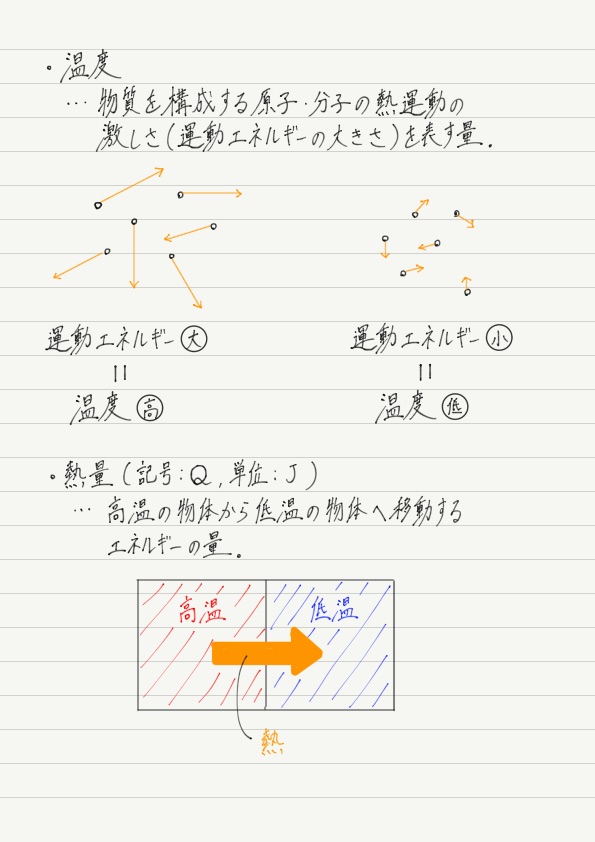 ・温度
… 物質を構成する原子・分子の熱運動の
激しさ(運動エネルギーの大きさ)を表す量.
運動エネルギー大
運動エネルギー小
=
=
温度高
温度低
・熱量(記号:Q,単位:J)
… 高温の物体から低温の物体へ移動する
エネルギーの量.
高温
低温
熱